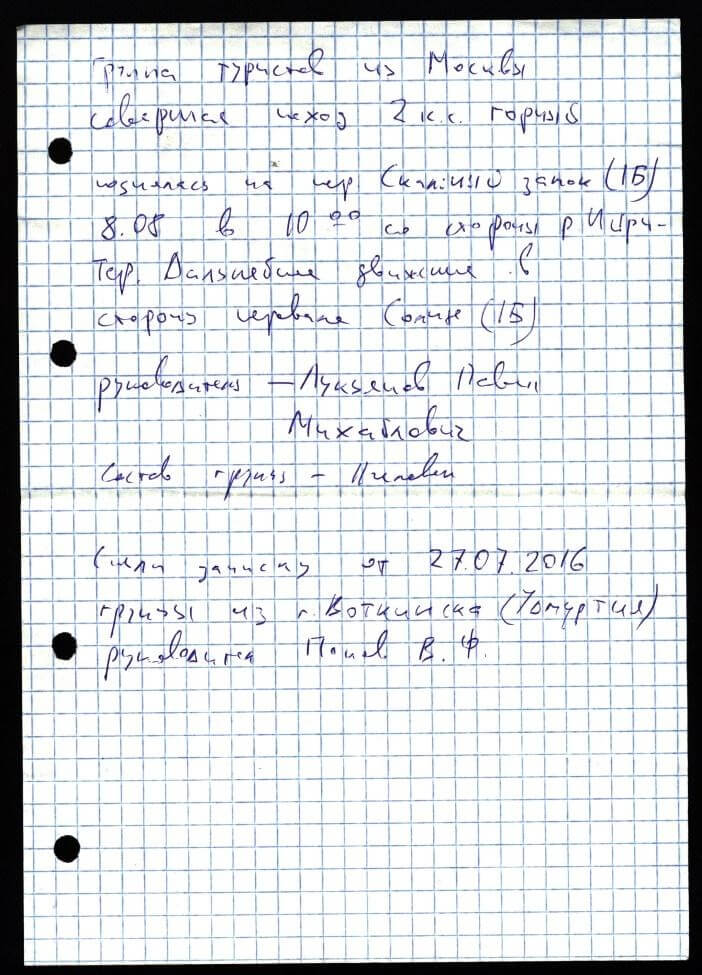 Группа туристов из Москвы
совершая поход 2 к.с. горный
поднялась на пер Скальный замок (1Б)
8.08 в 10 00 со стороны р
Дальнейшее движение в
сторону перевала Солнце (1Б)
руководитель — Лукьянов Павел
Михайлович
Состав группы –
Сняли записку от 27.07.2016
группы из г. Воткинска (Удмуртия)
руководитель Попов В. Ф.